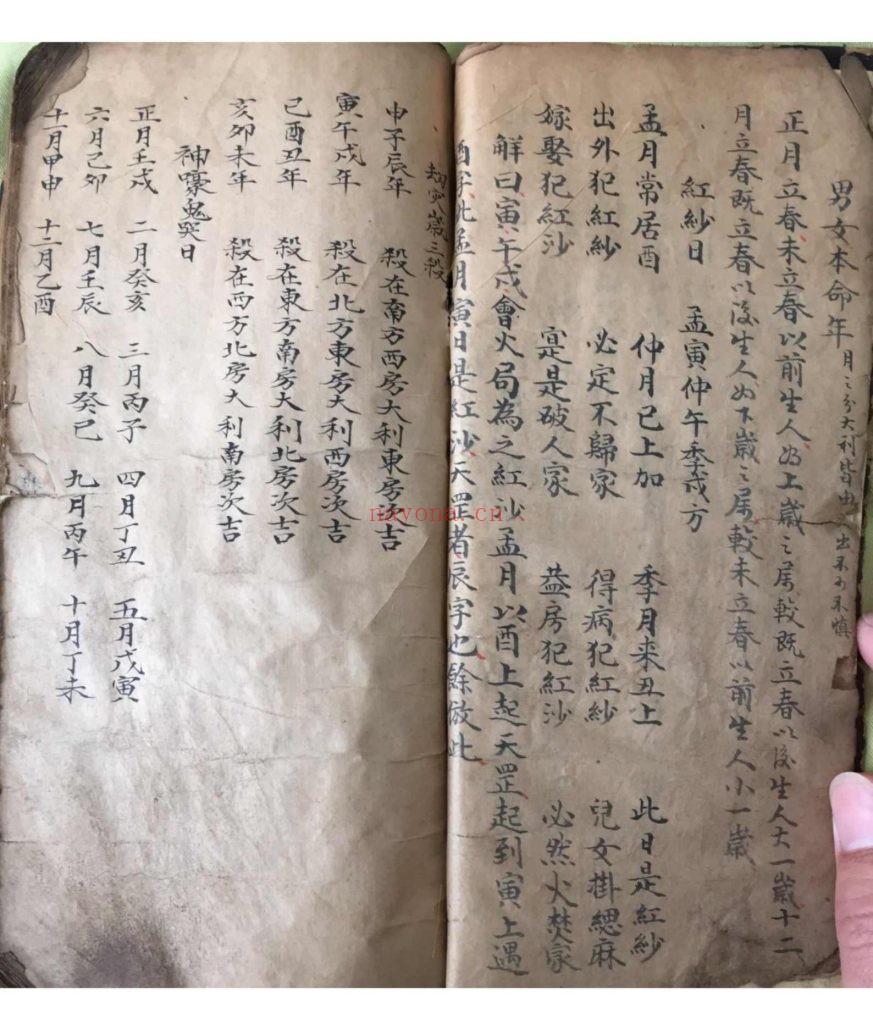 男女本命年 月之分大利皆由 出不可不慎
正月立春未立春以前生人為上歲之屬較既立春以後生人大一歲十二
月立春既立春以後生人為下歲之屬較未立春以前生人小一歲
紅紗日 孟寅仲午季戌方
孟月常居酉 仲月巳上加 季月来丑上 此日是紅紗
出外犯紅紗 必定不歸家 得病犯紅紗 兒女掛緦麻
嫁娶犯紅沙 寔是破人家 葢房犯紅沙 必然火焚家
解曰寅午戌會火局為之紅沙孟月以酉上起天罡起到寅上遇
酉字此孟月寅日是紅沙天罡者辰字也餘倣此
歲三殺
申子辰年 殺在南方西房大利東房次吉
寅午戌年 殺在北方東房大利西房次吉
巳酉丑年 殺在東方南房大利北房次吉
亥卯未年 殺在西方北房大利南房次吉
神嚎鬼哭日
正月壬戌 二月癸亥 三月丙子 四月丁丑 五月戊寅
六月己卯 七月壬辰 八月癸巳 九月丙午 十月丁未
十一月甲申 十二月乙酉
nayona.cn